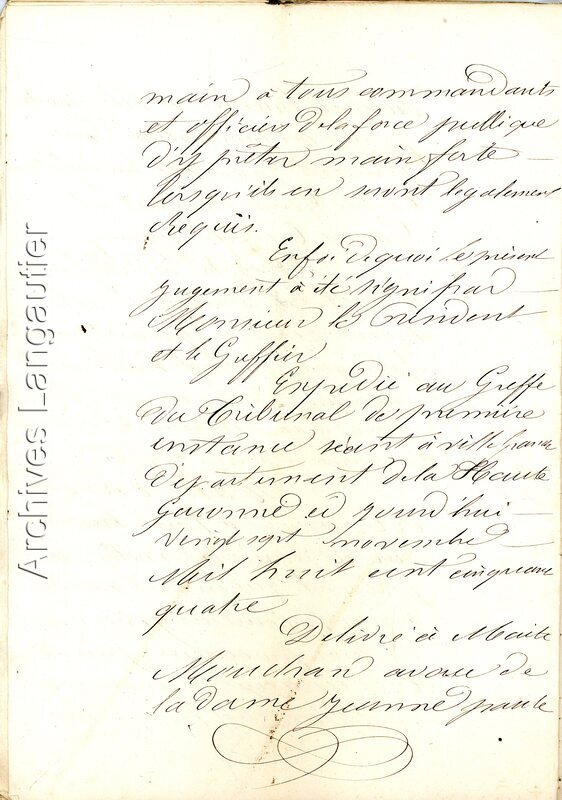 main à tous commandants
et officiers de la force publique
d'y prêter main forte
lorsqu'ils en seront légalement
Requis.
En foi de quoi le présent
jugement à été signé par
Monsieur le Président
et le Greffier
Expédié au Greffe
du Tribunal de première
instance séant à villefranche
département de la Haute
Garonne ce jourd'hui
vingt sept novembre
Mil huit cent cinquante
quatre
Délivré à Maître
Mouchan avoué de
la dame Jeanne paule
Archives Langautier